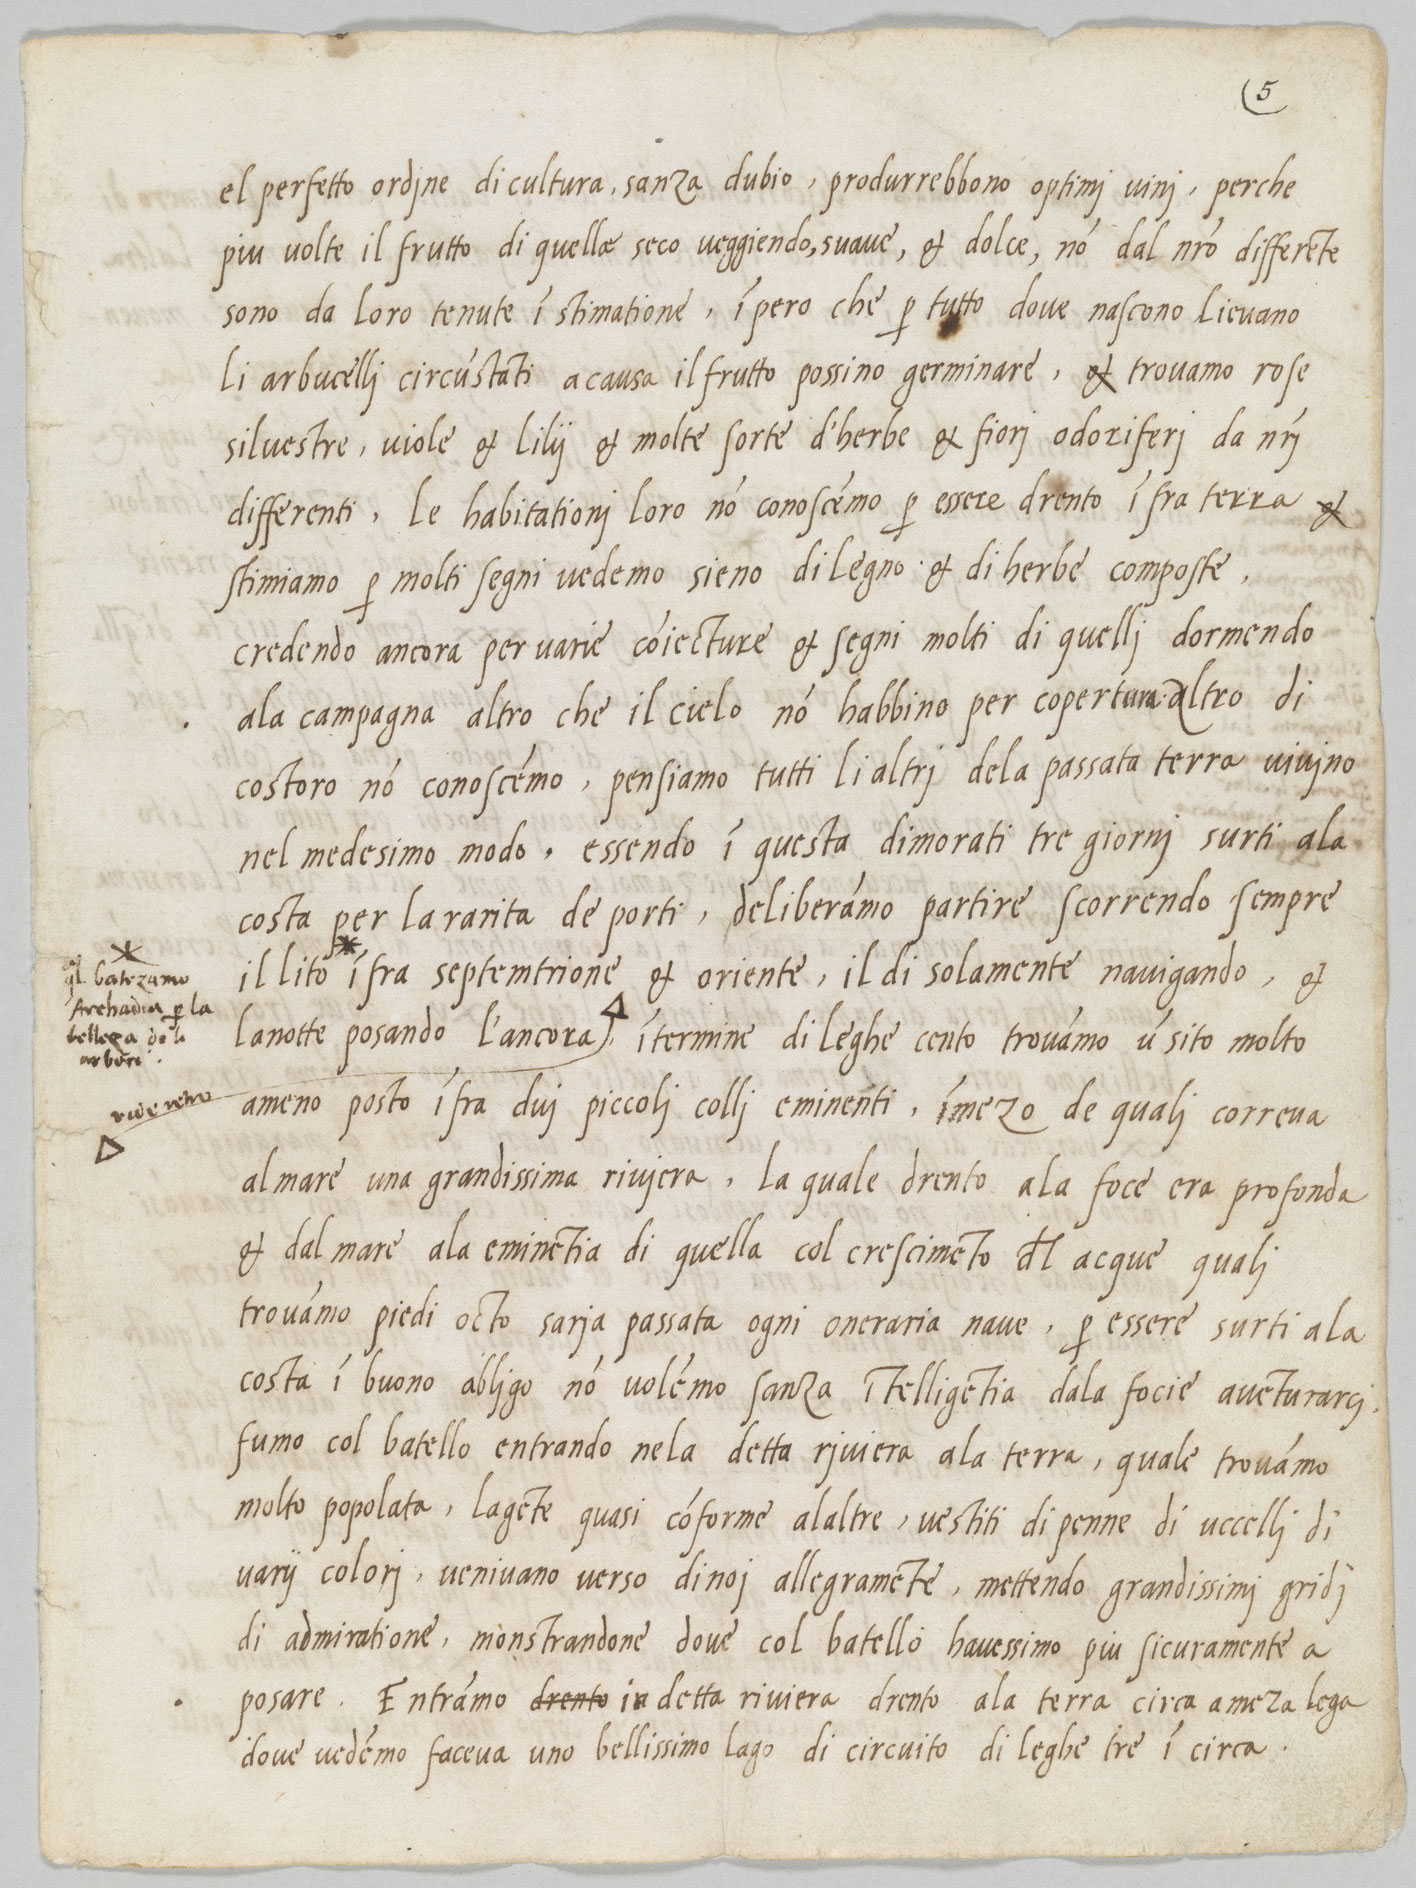 5
el perfetto ordine di cultura, sanza dubio, produrrebbono optimj vinj, perche
piu volte il frutto di quellæ seco veggiendo, suave, & dolce, nō dal nrō differēte
sono da loro tenute ī stimatione, īpero che ꝑ tutto dove nascono lievano
li arbucellj circūstāti a causa il frutto possino germinare, & trovamo rose
silvestre, viole & lilij & molte sorte d'herbe & fiorj odoriferj da nrj̄
differenti, le habitationj loro nō conoscēmo ꝑ essere drento ī fra terra &
stimiamo ꝑ molti segni vedemo sieno di legno & di herbe composte,
credendo ancora per varie cōiecture & segni molti di quellj dormendo
ala campagna altro che il cielo nō habbino per copertura. altro di
costoro nō conoscēmo, pensiamo tutti li altrj dela passata terra vivino
nel medesimo modo. essendo ī questa dimorati tre giornj surti ala
costa per la rarita de porti, deliberāmo partire scorrendo sempre
* il lito īfra septemtrione & oriente, il di solamente navigando, &
*
ql batezamo
Archadia ꝑ la
belleza de li
arbori.
la notte posando l'ancora). Δ ītermine di leghe cento trovāmo ū sito molto
vide retro
Δ
ameno posto īfra duj piccolj collj eminenti, īmezo de qualj correva
al mare una grandissima rivjera, la quale drento ala foce era profonda
& dal mare ala eminētia di quella col crescimēto dl acque qualj
trovāmo piedi octo sarja passata ogni oneraria nave, ꝑ essere surti ala
costa ī buono obljgo nō volēmo sanza ītelligētia dala focie avēturarcj.
fumo col batello entrando nela detta rjviera ala terra, quale trovāmo
molto popolata, la gēte quasi cōforme al altre, vestiti di penne di uccellj di
varij colorj, venivano verso di noj allegramēte, mettendo grandissimj gridj
di admiratione, monstrandone dove col batello havessimo piu sicuramente a
posare. Entrāmo drento in detta riviera drento ala terra circa a meza lega
dove vedēmo faceva uno bellissimo lago di circuito di leghe tre ī circa.